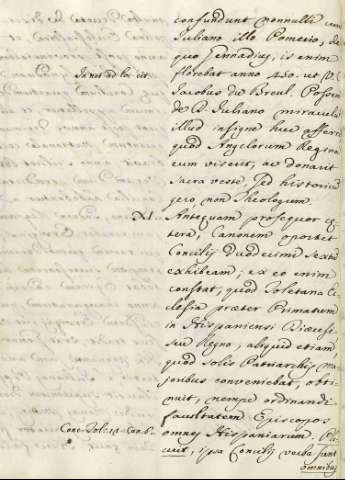 confundunt nonnulli cum
Juliano illo Pomerio, de
quo Gennadius, is enim
florebat anno 450. ut P.
In not. ad loc. cit.
Jacobus du Breul. Possem
de S. Juliano miraculu
illud insigne huc afferre
quod Angelorum Regina
eum viserit, ac donarit
sacra veste, sed historiam
gero, non Theologum.
XI. Antequam prosequor cę
tera, Canonem oportet
Concilij duodecimi Sextũ
exhibeam; ex eo enim
constat, quod Toletana Ec
clesia præter Primatum
in Hispaniensi Diœcesi,
seu Regno, aliquid etiam,
quod solis Patriarchis ma
joribus conveniebat, obti
nuit, nempe ordinandi
facultatem Episcopos
Conc. Tol. 12. Can. 6.
omnes Hispaniarum. Pla
cuit, ipsa Concilij verba sunt
omnibus